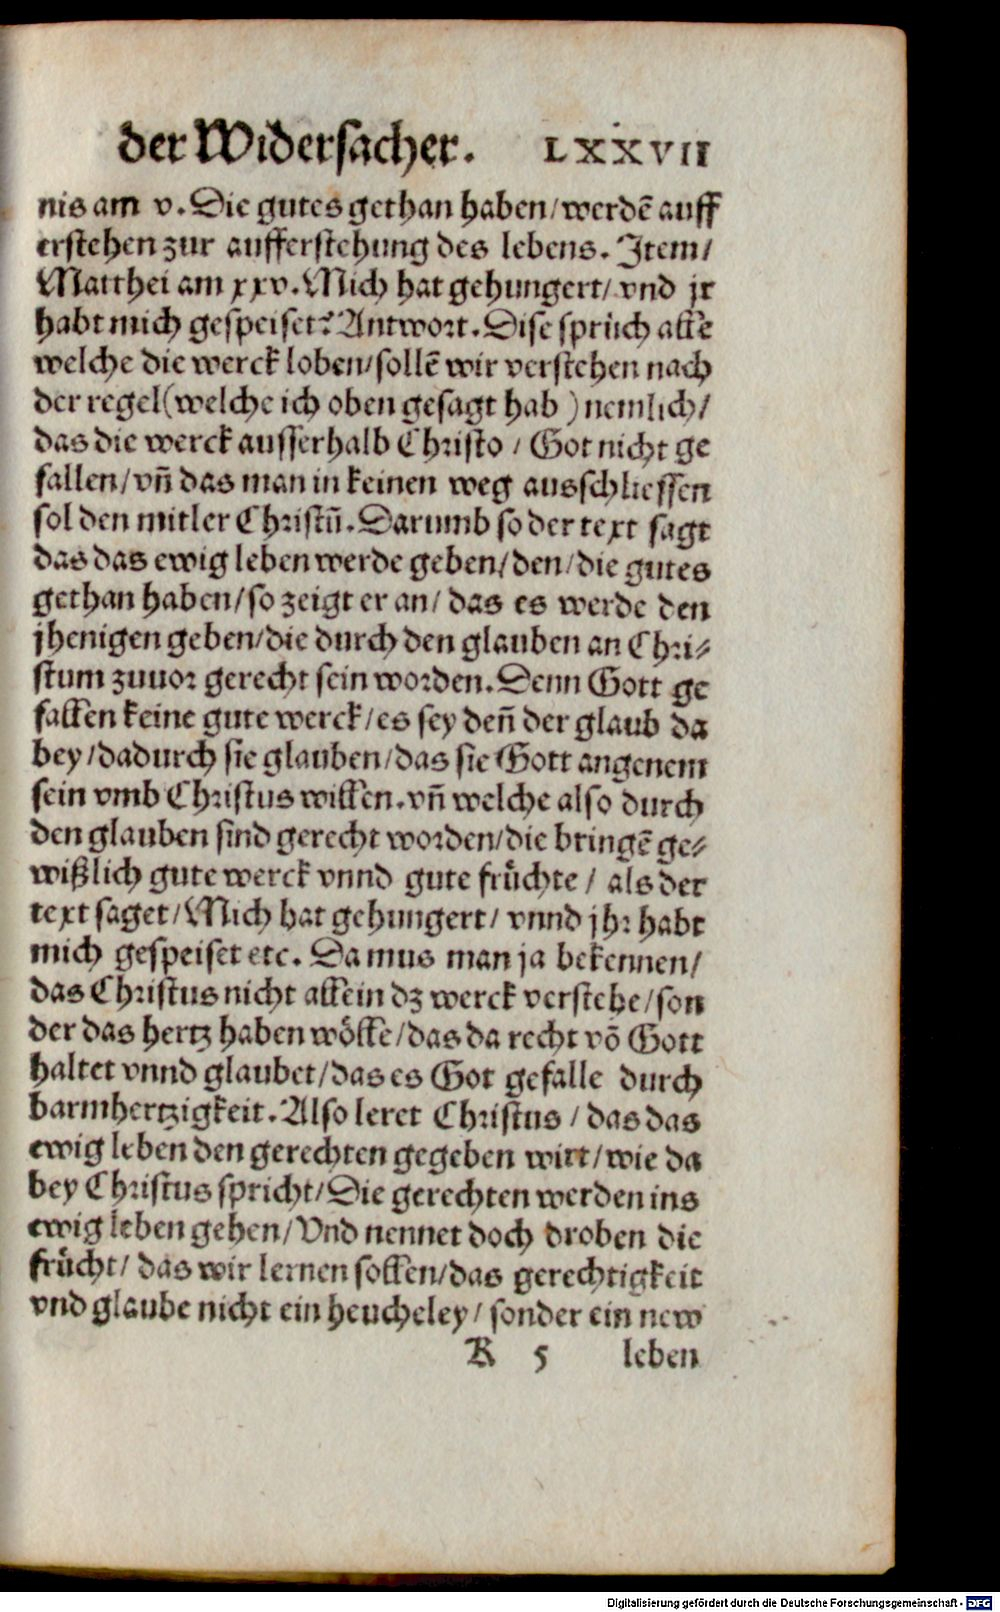 der Widersacher. LXXVII
nis am v. Die gutes gethan haben/werdē auff
erstehen zur aufferstehung des lebens. Item/
Matthei am xxv. Mich hat gehungert/ vnd jr
habt mich gespeiset? Antwort. Dise sprüch alle
welche die werck loben/sollē wir verstehen nach
der regel(welche ich oben gesagt hab ) nemlich/
das die werck ausserhalb Christo / Got nicht ge
fallen/vn̄ das man in keinen weg ausschliessen
sol den mitler Christū. Darumb so der text sagt
das das ewig leben werde geben/den/die gutes
gethan haben/so zeigt er an/ das es werde den
jhenigen geben/die durch den glauben an Chri⸗
stum zuuor gerecht sein worden. Denn Gott ge
fallen keine gute werck/es sey den̄ der glaub da
bey/dadurch sie glauben/das sie Gott angenem
sein vmb Christus willen. vn̄ welche also durch
den glauben sind gerecht worden/die bringē ge⸗
wißlich gute werck vnnd gute früchte / als der
text saget/Mich hat gehungert/ vnnd jhr habt
mich gespeiset etc. Da mus man ja bekennen/
das Christus nicht allein dz werck verstehe/son
der das hertz haben wölle/das da recht võ Gott
haltet vnnd glaubet/das es Got gefalle durch
barmhertzigkeit. Also leret Christus / das das
ewig leben den gerechten gegeben wirt/wie da
bey Christus spricht/Die gerechten werden ins
ewig leben gehen/Vnd nennet doch droben die
frücht/ das wir lernen sollen/das gerechtigkeit
vnd glaube nicht ein heucheley/ sonder ein new
K 5 leben
Digitalisierung gefördert durch die Deutsche Forschungsgemeinschaft - DFG